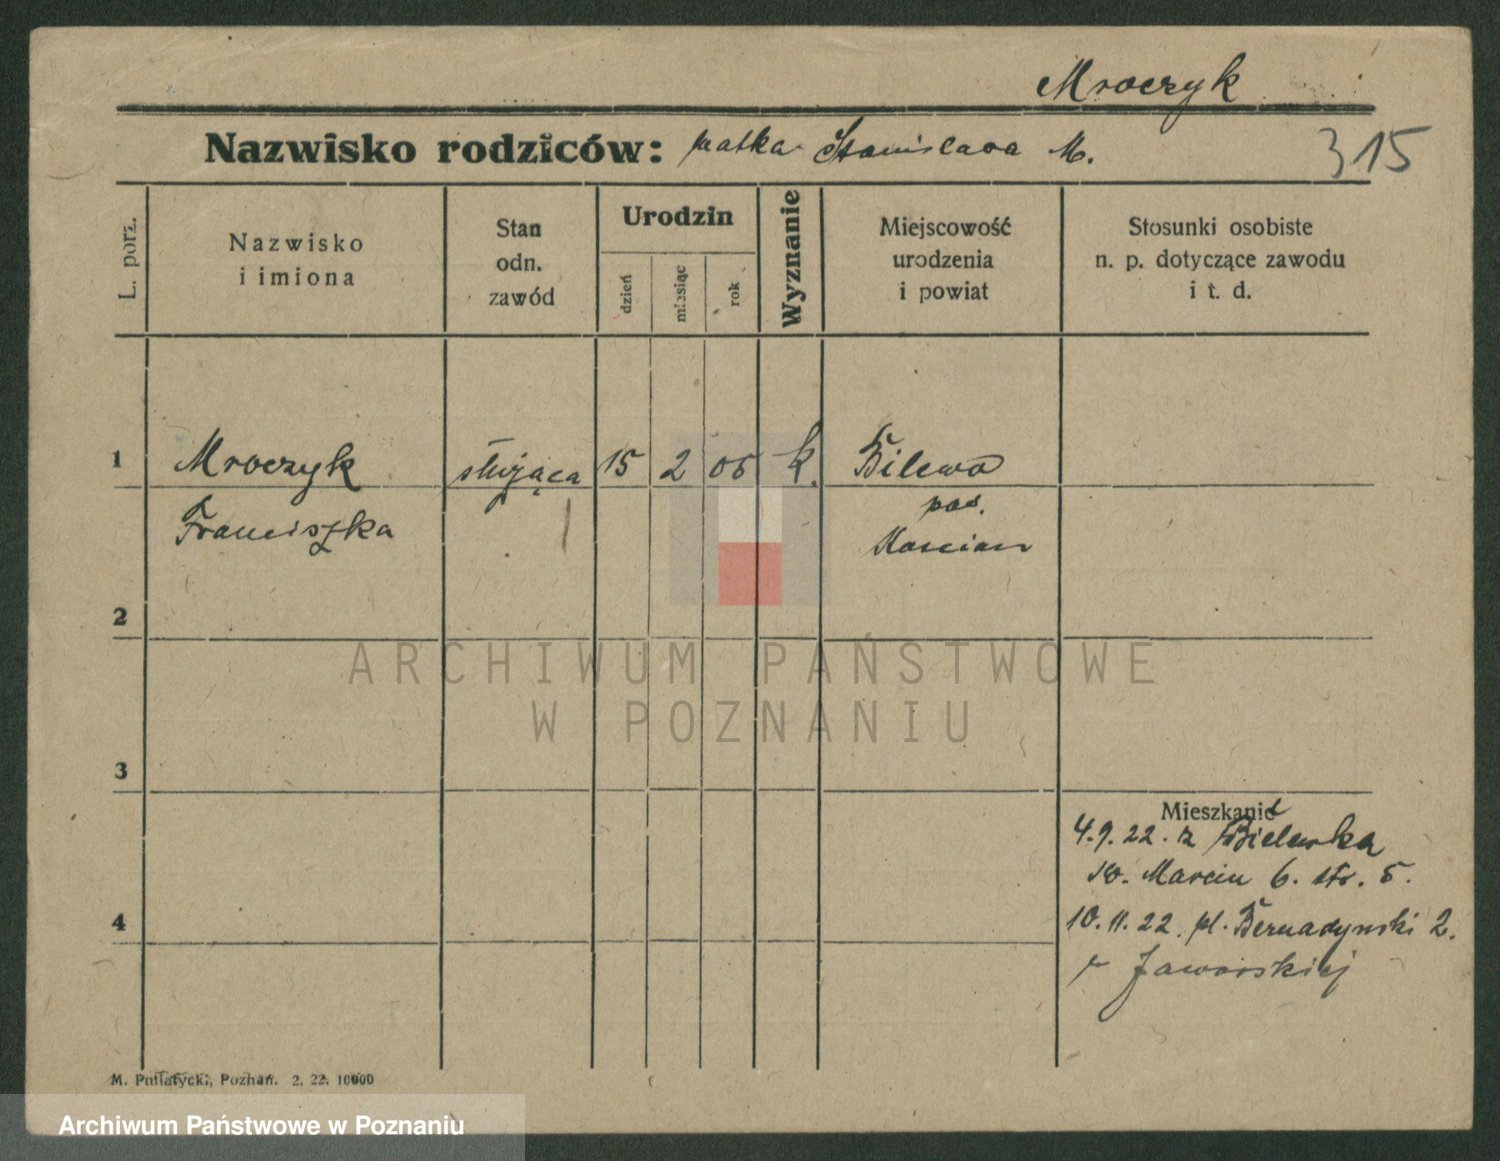 Mroczyk
Nazwisko rodziców: matka Stanisława M. 315
L. porz.
Nazwisko
i imiona
Stan
odn.
zawód
Urodzin
dzień
miesiąc
rok
Wyznanie
Miejscowość
urodzenia
i powiat
Stosunki osobiste
n. p. dotyczące zawodu
i t. d.
1 Mroczyk służąca 15 2 05 k. Bilewo
pow.
Franciszka Koscian
2
ARCHIWUM PAŃSTWOWE
W POZNANIU
3
Mieszkanie
4.9.22. z Bielewka
św. Marcin 6. str. 5.
4
10.11.22. pl. Bernadynski 2.
Jaworskiej
M. Putiatycki, Poznań. 2, 22. 10000
Archiwum Państwowe w Poznaniu